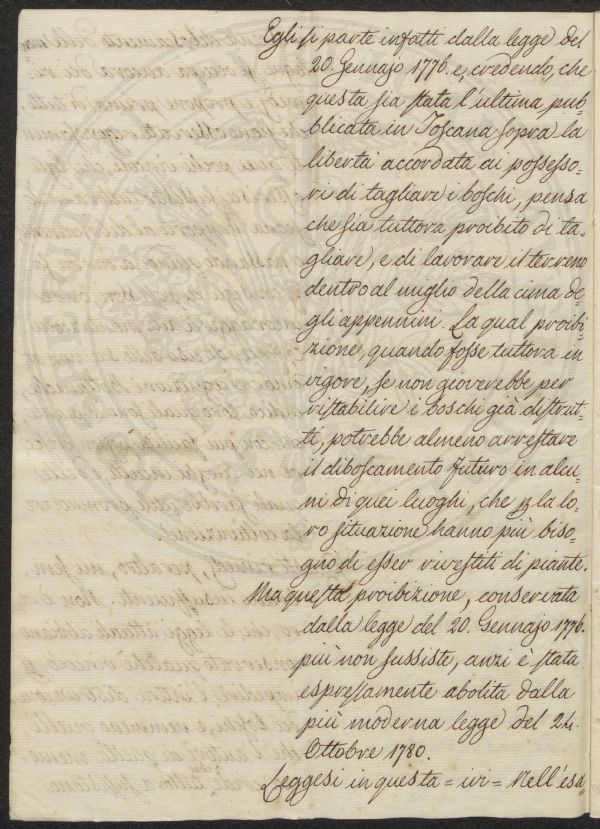 Egli si parte infatti dalla legge del
20. Gennajo 1776. e, credendo, che
questa sia stata l'ultima pub-
blicata in Toscana sopra la
libertà accordata ai possesso-
ri di tagliare i boschi, pensa
che sia tuttora proibito di ta-
gliare, e di lavorare il terreno
dentro al miglio della cima de-
gli appennini. La qual proibi-
zione, quando fosse tuttora in
vigore, se non gioverebbe per
ristabilire i boschi già distrut-
ti, potrebbe almeno arrestare
il diboscamento futuro in alcu-
ni di quei luoghi, che p la lo-
ro situazione hanno più biso-
gno di esser rivestiti di piante.
Ma questa proibizione, conservata
dalla legge del 20. Gennajo 1776.
più non sussiste, anzi è stata
espressamente abolita dalla
più moderna legge del 24.
Ottobre 1780.
Leggesi in questa = ivi = Nell'esa-